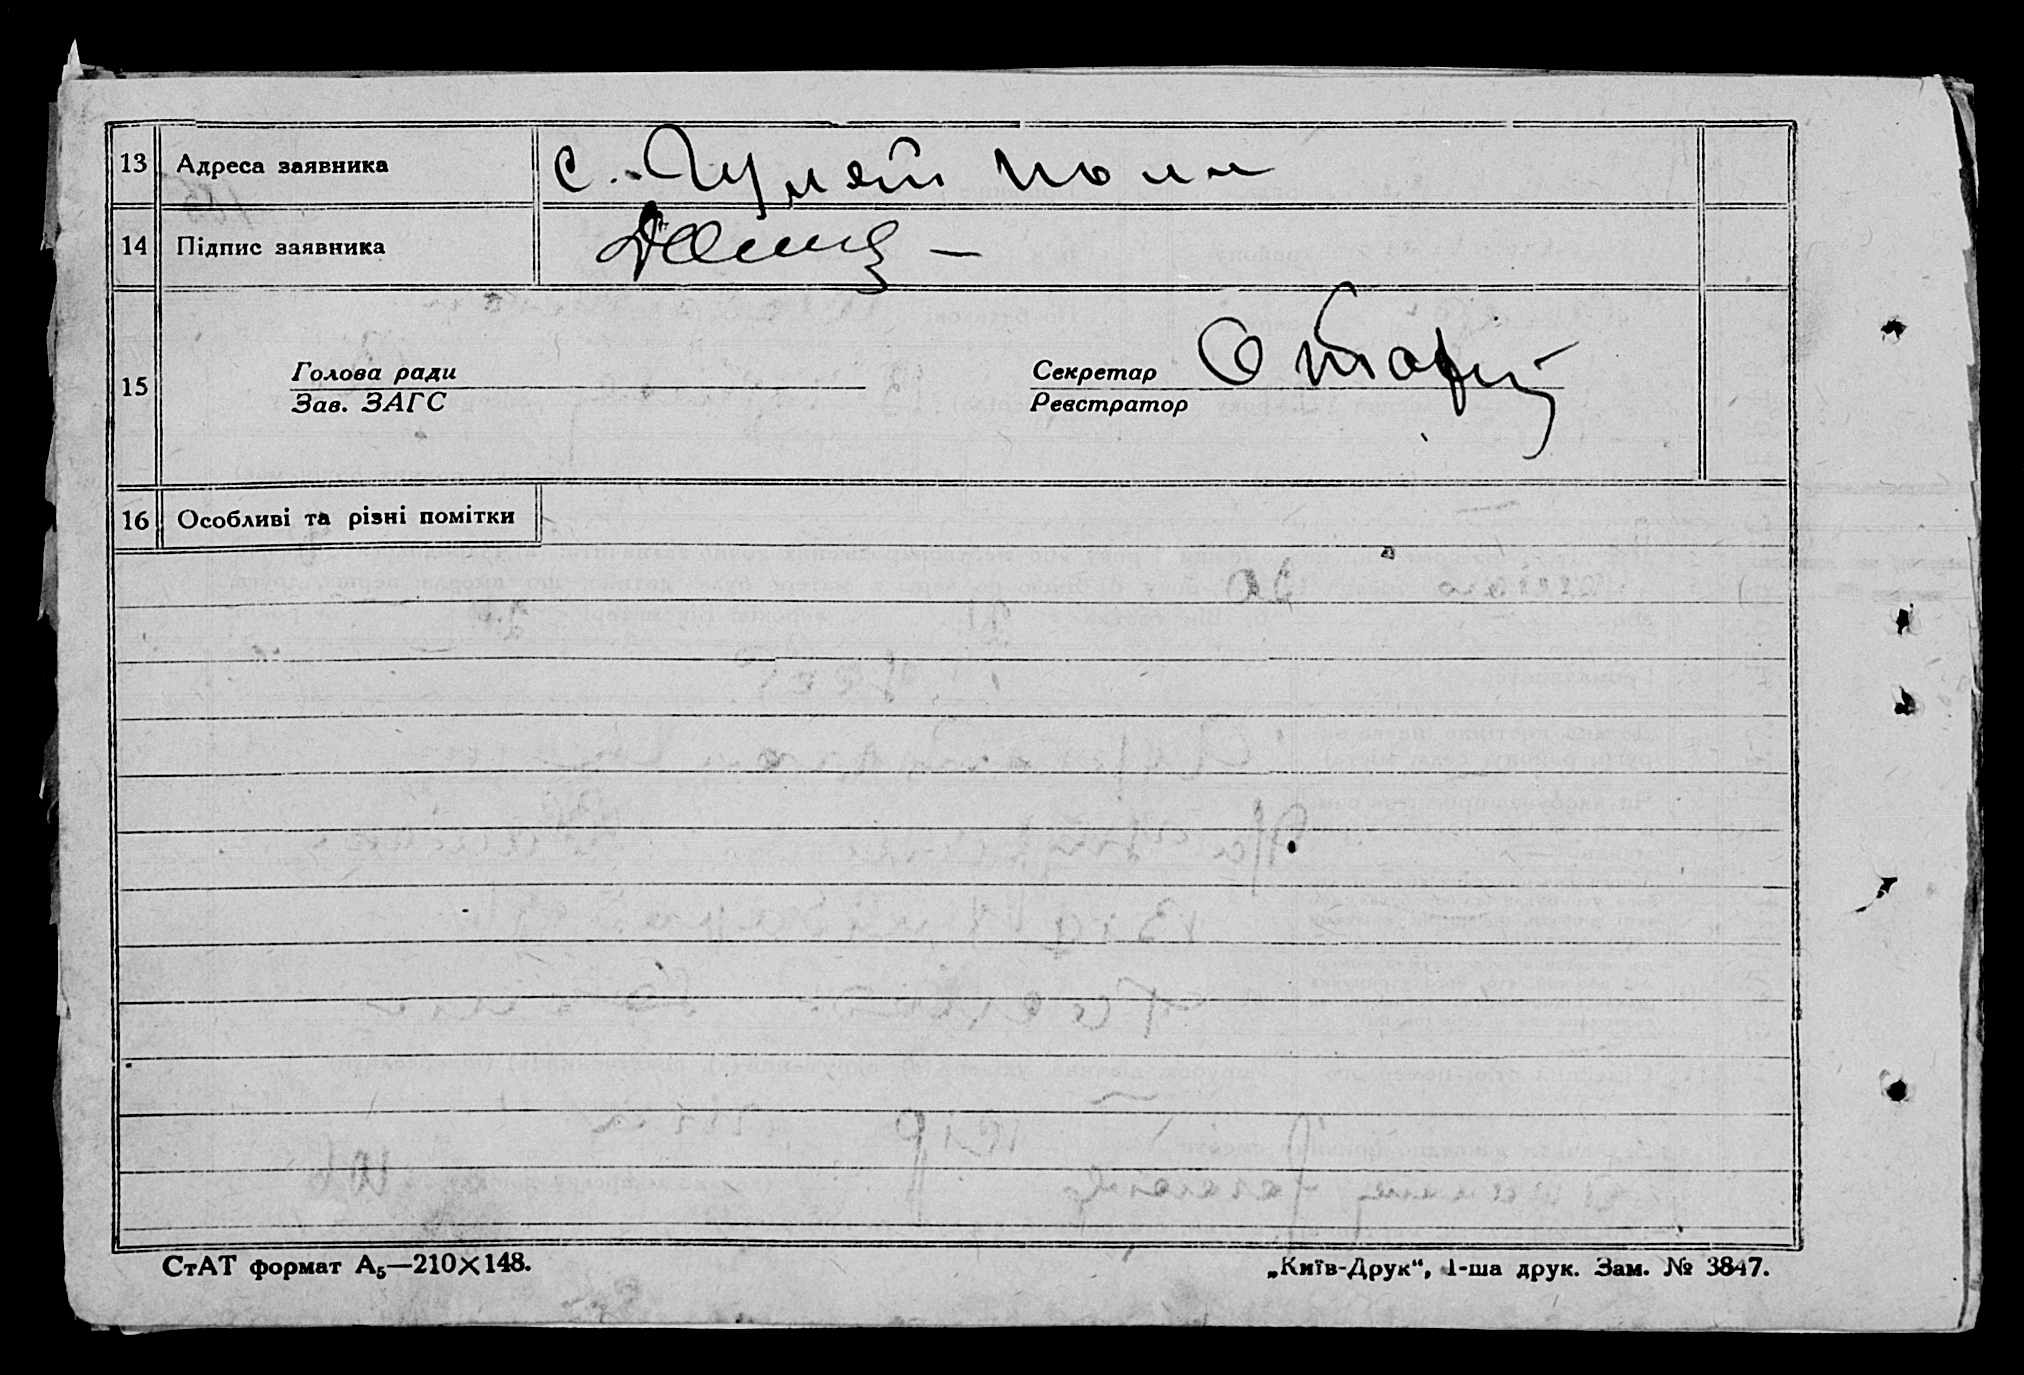 13 Адреса заявника с. Гуляй поле
14 Підпис заявника
15 Голова ради
Зав. ЗАГС
Секретар
Реєстратор
16 Особливі та різні помітки
СтАТ формат А₅—210×148.
„Київ-Друк“, 1-ша друк. Зам. № 3847.